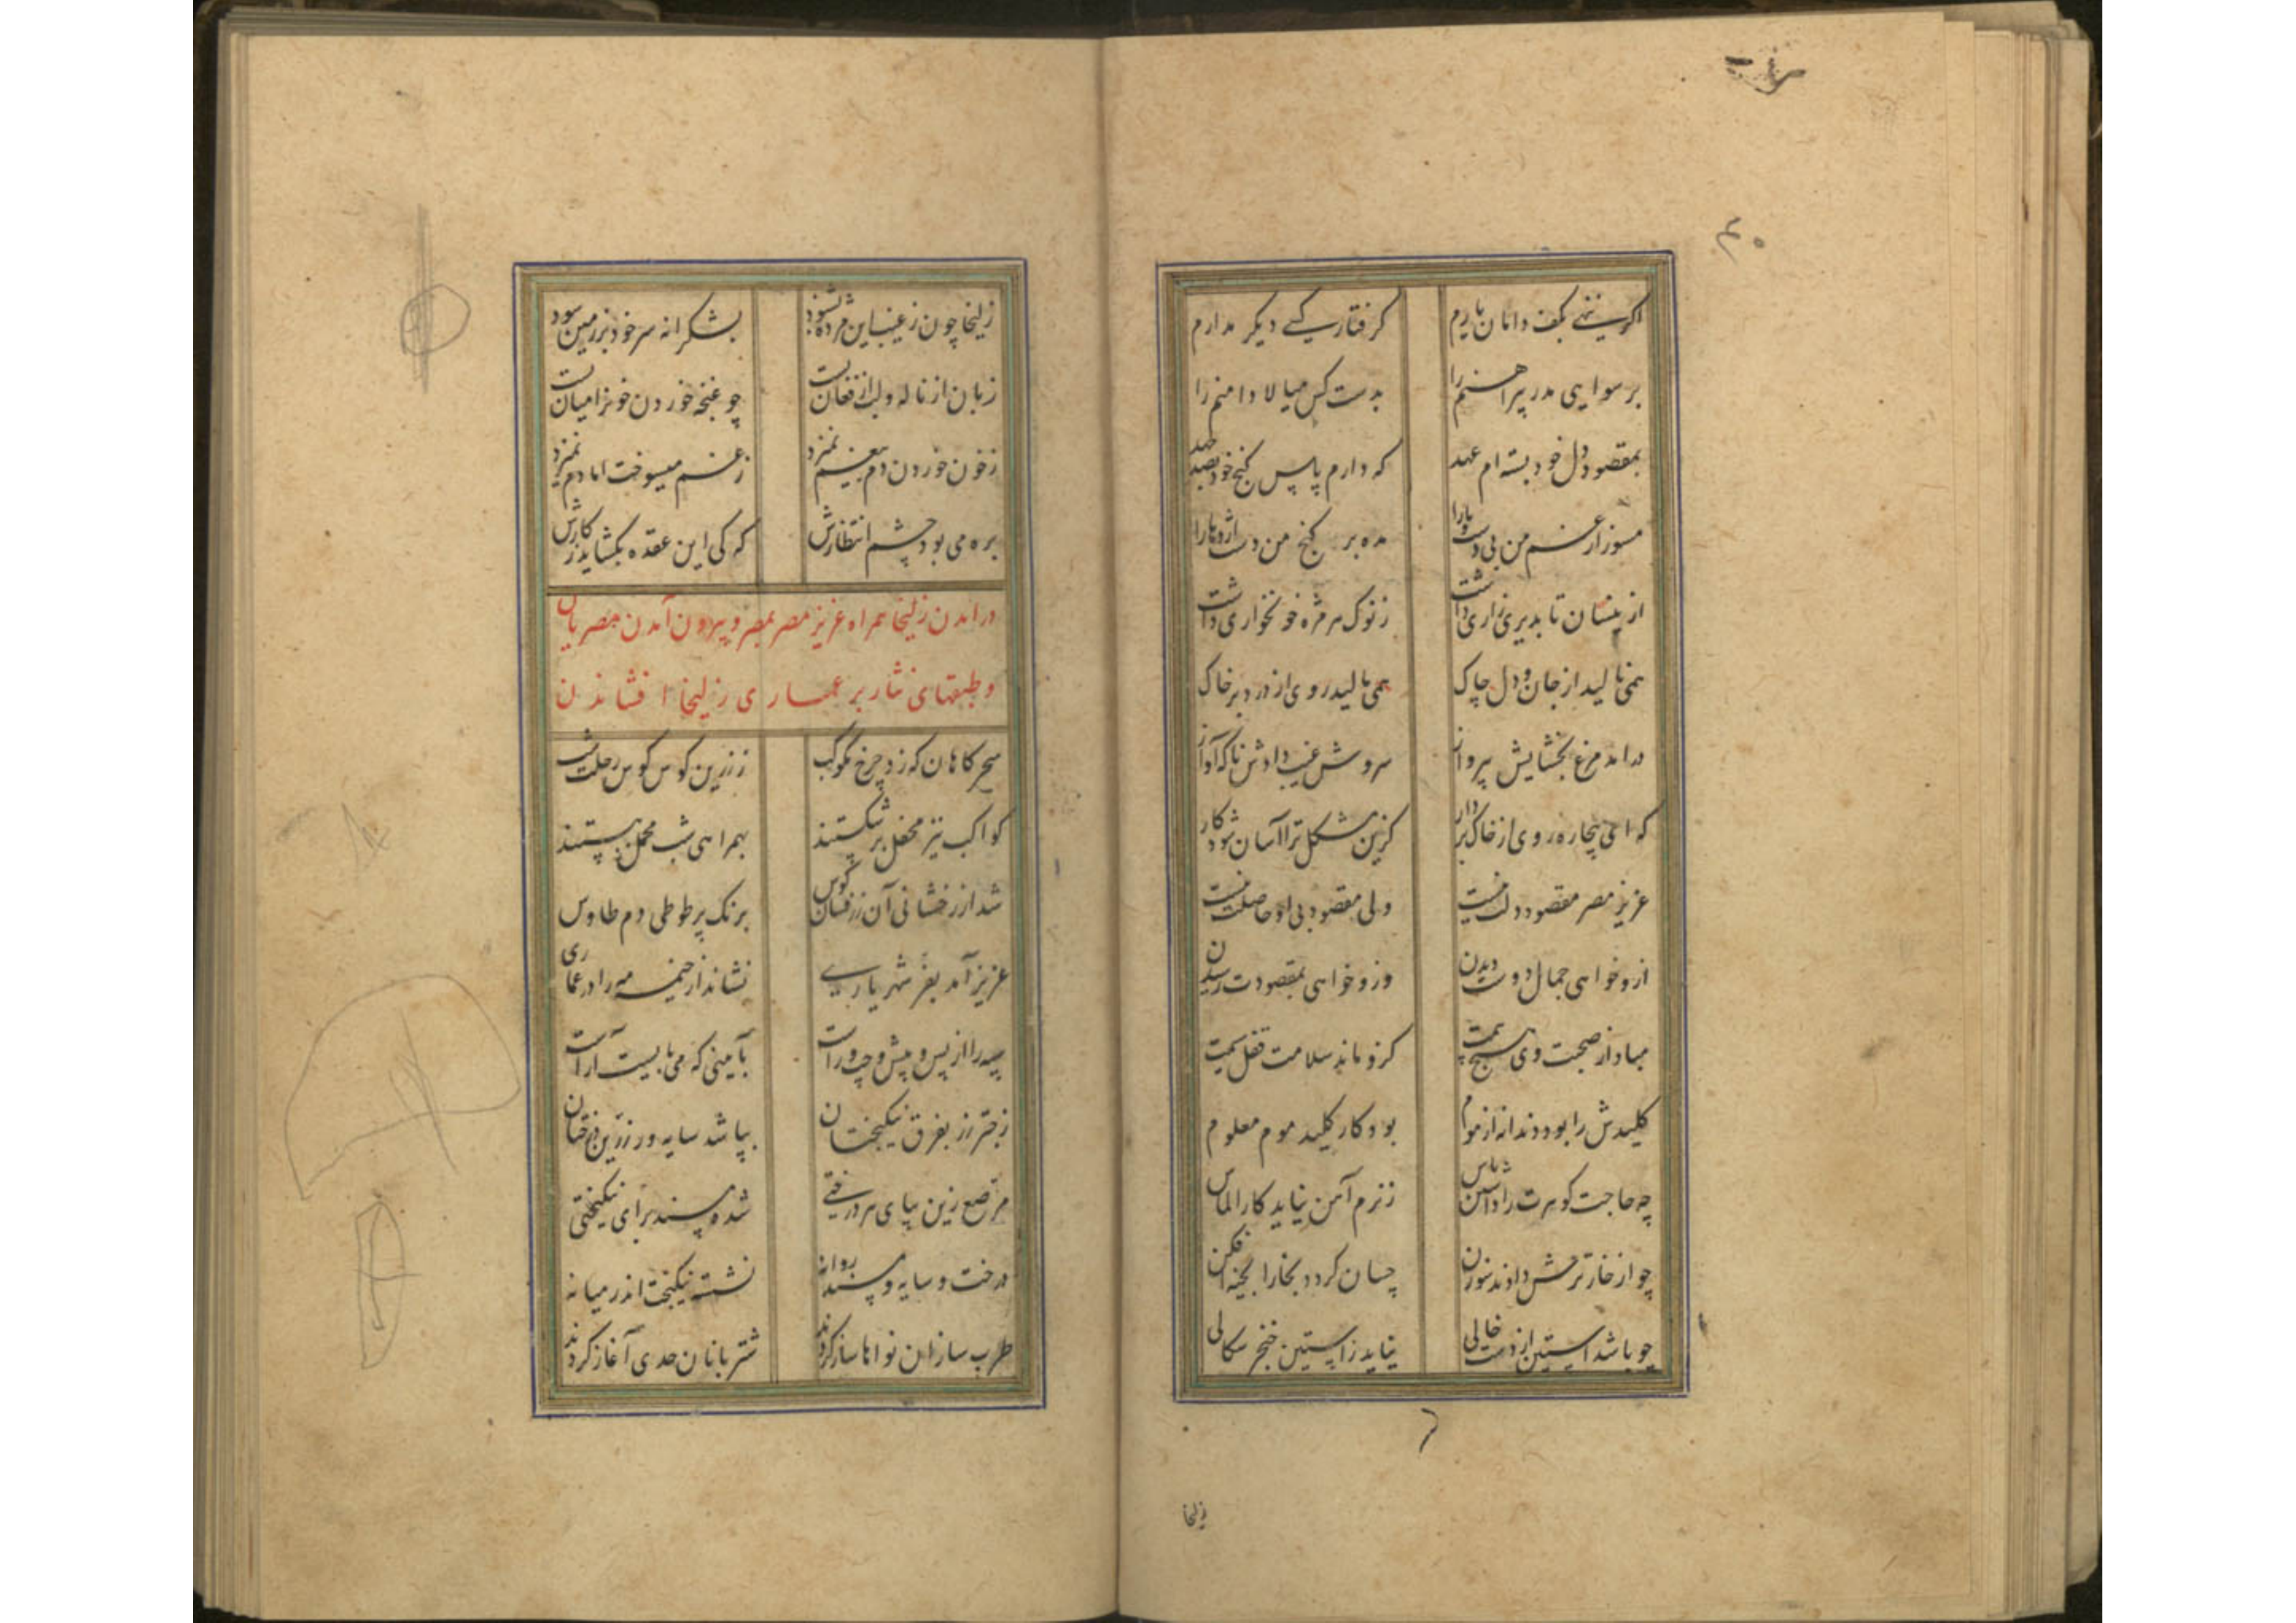 ۴۰
اگر ننهی بکف دامان یارم
گرفتار کسی دیگر مدارم
برسوایی مدر پیراهنم را
بدست کس میالا دامنم را
بمقصود دل خود بسته ام عهد
که دارم پاس گنج خود بصد جهد
مسوز از غم من بی دست و پا را
مده بر گنج من دست اژدها را
ازینسان تا بدیری زاری داشت
ز نوک هر مژه خونخواری داشت
همی نالید از جان و دل چاک
همی مالید روی از درد بر خاک
درامد مرغ بخشایش بپرواز
سروش غیب دادش ناگه آواز
که ای بیچاره روی از خاک بردار
کزین مشکل ترا آسان شود کار
عزیز مصر مقصود دلت نیست
ولی مقصود بی او حاصلت نیست
ازو خواهی جمال دوست دیدن
وزو خواهی بمقصودت رسیدن
مباد از صحبت وی هیچ بیمت
کزو ماند سلامت قفل سیمت
کلیدش را بود دندانه از موم
بود کار کلید موم معلوم
چه حاجت گوهرت را داشتن پاس
ز نرم آهن نیاید کار الماس
چو از خار ترحش دادند سوزن
چسان گردد بخارا بخیه افکن
چو باشد آستین از دست خالی
نیاید ز آستین خنجر سگالی
زلیخا
زلیخا چون ز غیب این مژده بشنود
بشکرانه سر خود بر زمین سود
زبان از ناله و لب از فغان بست
چو غنچه خوردن خون را میان بست
ز خون خوردن دمی بیغم نمیزد
ز غم میسوخت اما دم نمیزد
بره می بود چشم انتظارش
که کی این عقده بگشاید ز کارش
درامدن زلیخا همراه عزیز مصر بمصر و بیرون آمدن مصریان
و طبقهای نثار بر عماری زلیخا افشاندن
سحرگاهان که زد چرخ مکوکب
ز زرین کوس کوس رحلت شب
کواکب نیز محفل بر شکستند
بهمراهی شب محمل ببستند
شد از رخشانی آن زرفشان کوس
برنگ پر طوطی دم طاوس
عزیز آمد بفر شهریاری
نشاند از خیمه مه را در عماری
سپه را از پس و پیش و چپ و راست
بآیینی که می بایست آراست
ز چتر زر بفرق نیکبختان
بپا شد سایه ور زرین درختان
مرصع زین بپای هر درختی
شده مسند برای نیکبختی
درخت و سایه و مسند روانه
نشسته نیکبخت اندر میانه
طرب سازان نواها ساز کردند
شتربانان حدی آغاز کردند